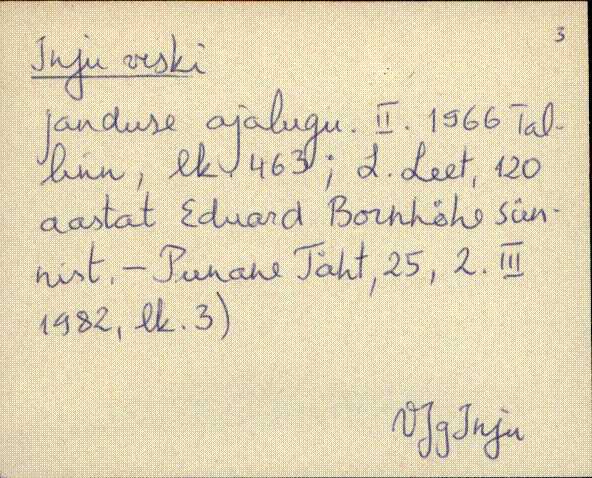 3
Inju veski
janduse ajalugu. II. 1966 Tal-
linn, lk. 463; L. Leet, 120
aastat Eduard Bornhöhe sün-
nist. - Punane Täht, 25, 2. III
1982, lk. 3)
VJg Inju